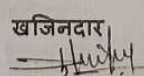 खजिनदार